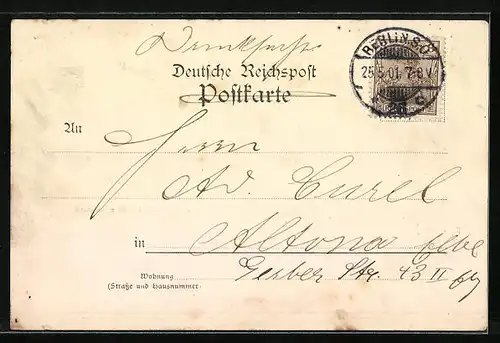 Drucksache
BERLIN S.O.
25.5.01. 7-8 V.
Deutsche Reichspost
Postkarte
An
Herrn
Ad. Curel
in Altona Elbe
Wohnung
(Straße und Hausnummer)
Gerber Str. 43 II